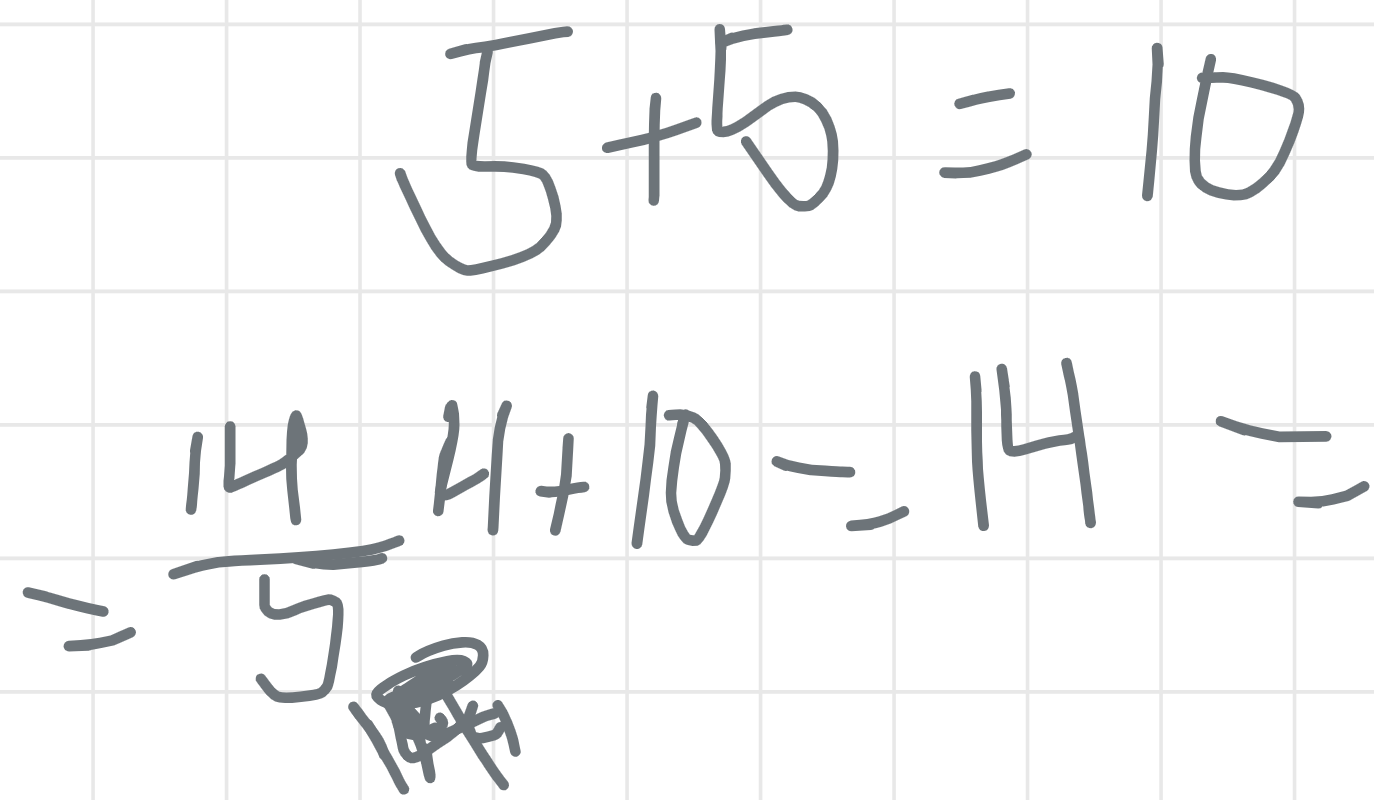 5+5 = 10
4+10 = 14 =
= 14/5